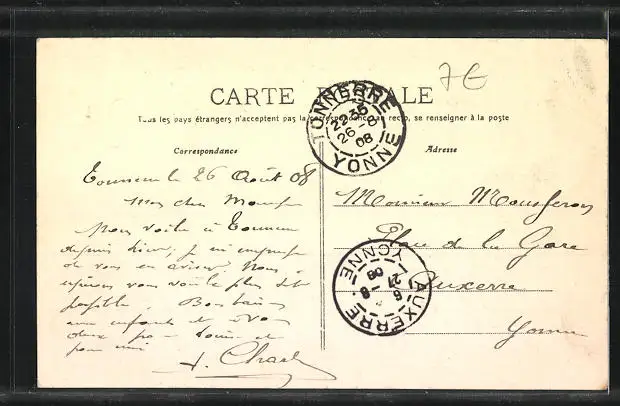 7€
CARTE POSTALE
Tous les pays étrangers n'acceptent pas la correspondance au recto, se renseigner à la poste
TONNERRE
22 35
26 -8
08
YONNE
Correspondance
Adresse
Tonnerre le 26 Août 08
Mon cher
Nous voilà à Tonnerre
depuis hier, je m'empresse
de vous en aviser. Nous
espérons vous voir le plus tôt
possible. Bons baisers
aux enfants et à vous
deux
pour moi
Monsieur
Place de la Gare
Auxerre
Yonne
AUXERRE
27 -8
08
YONNE